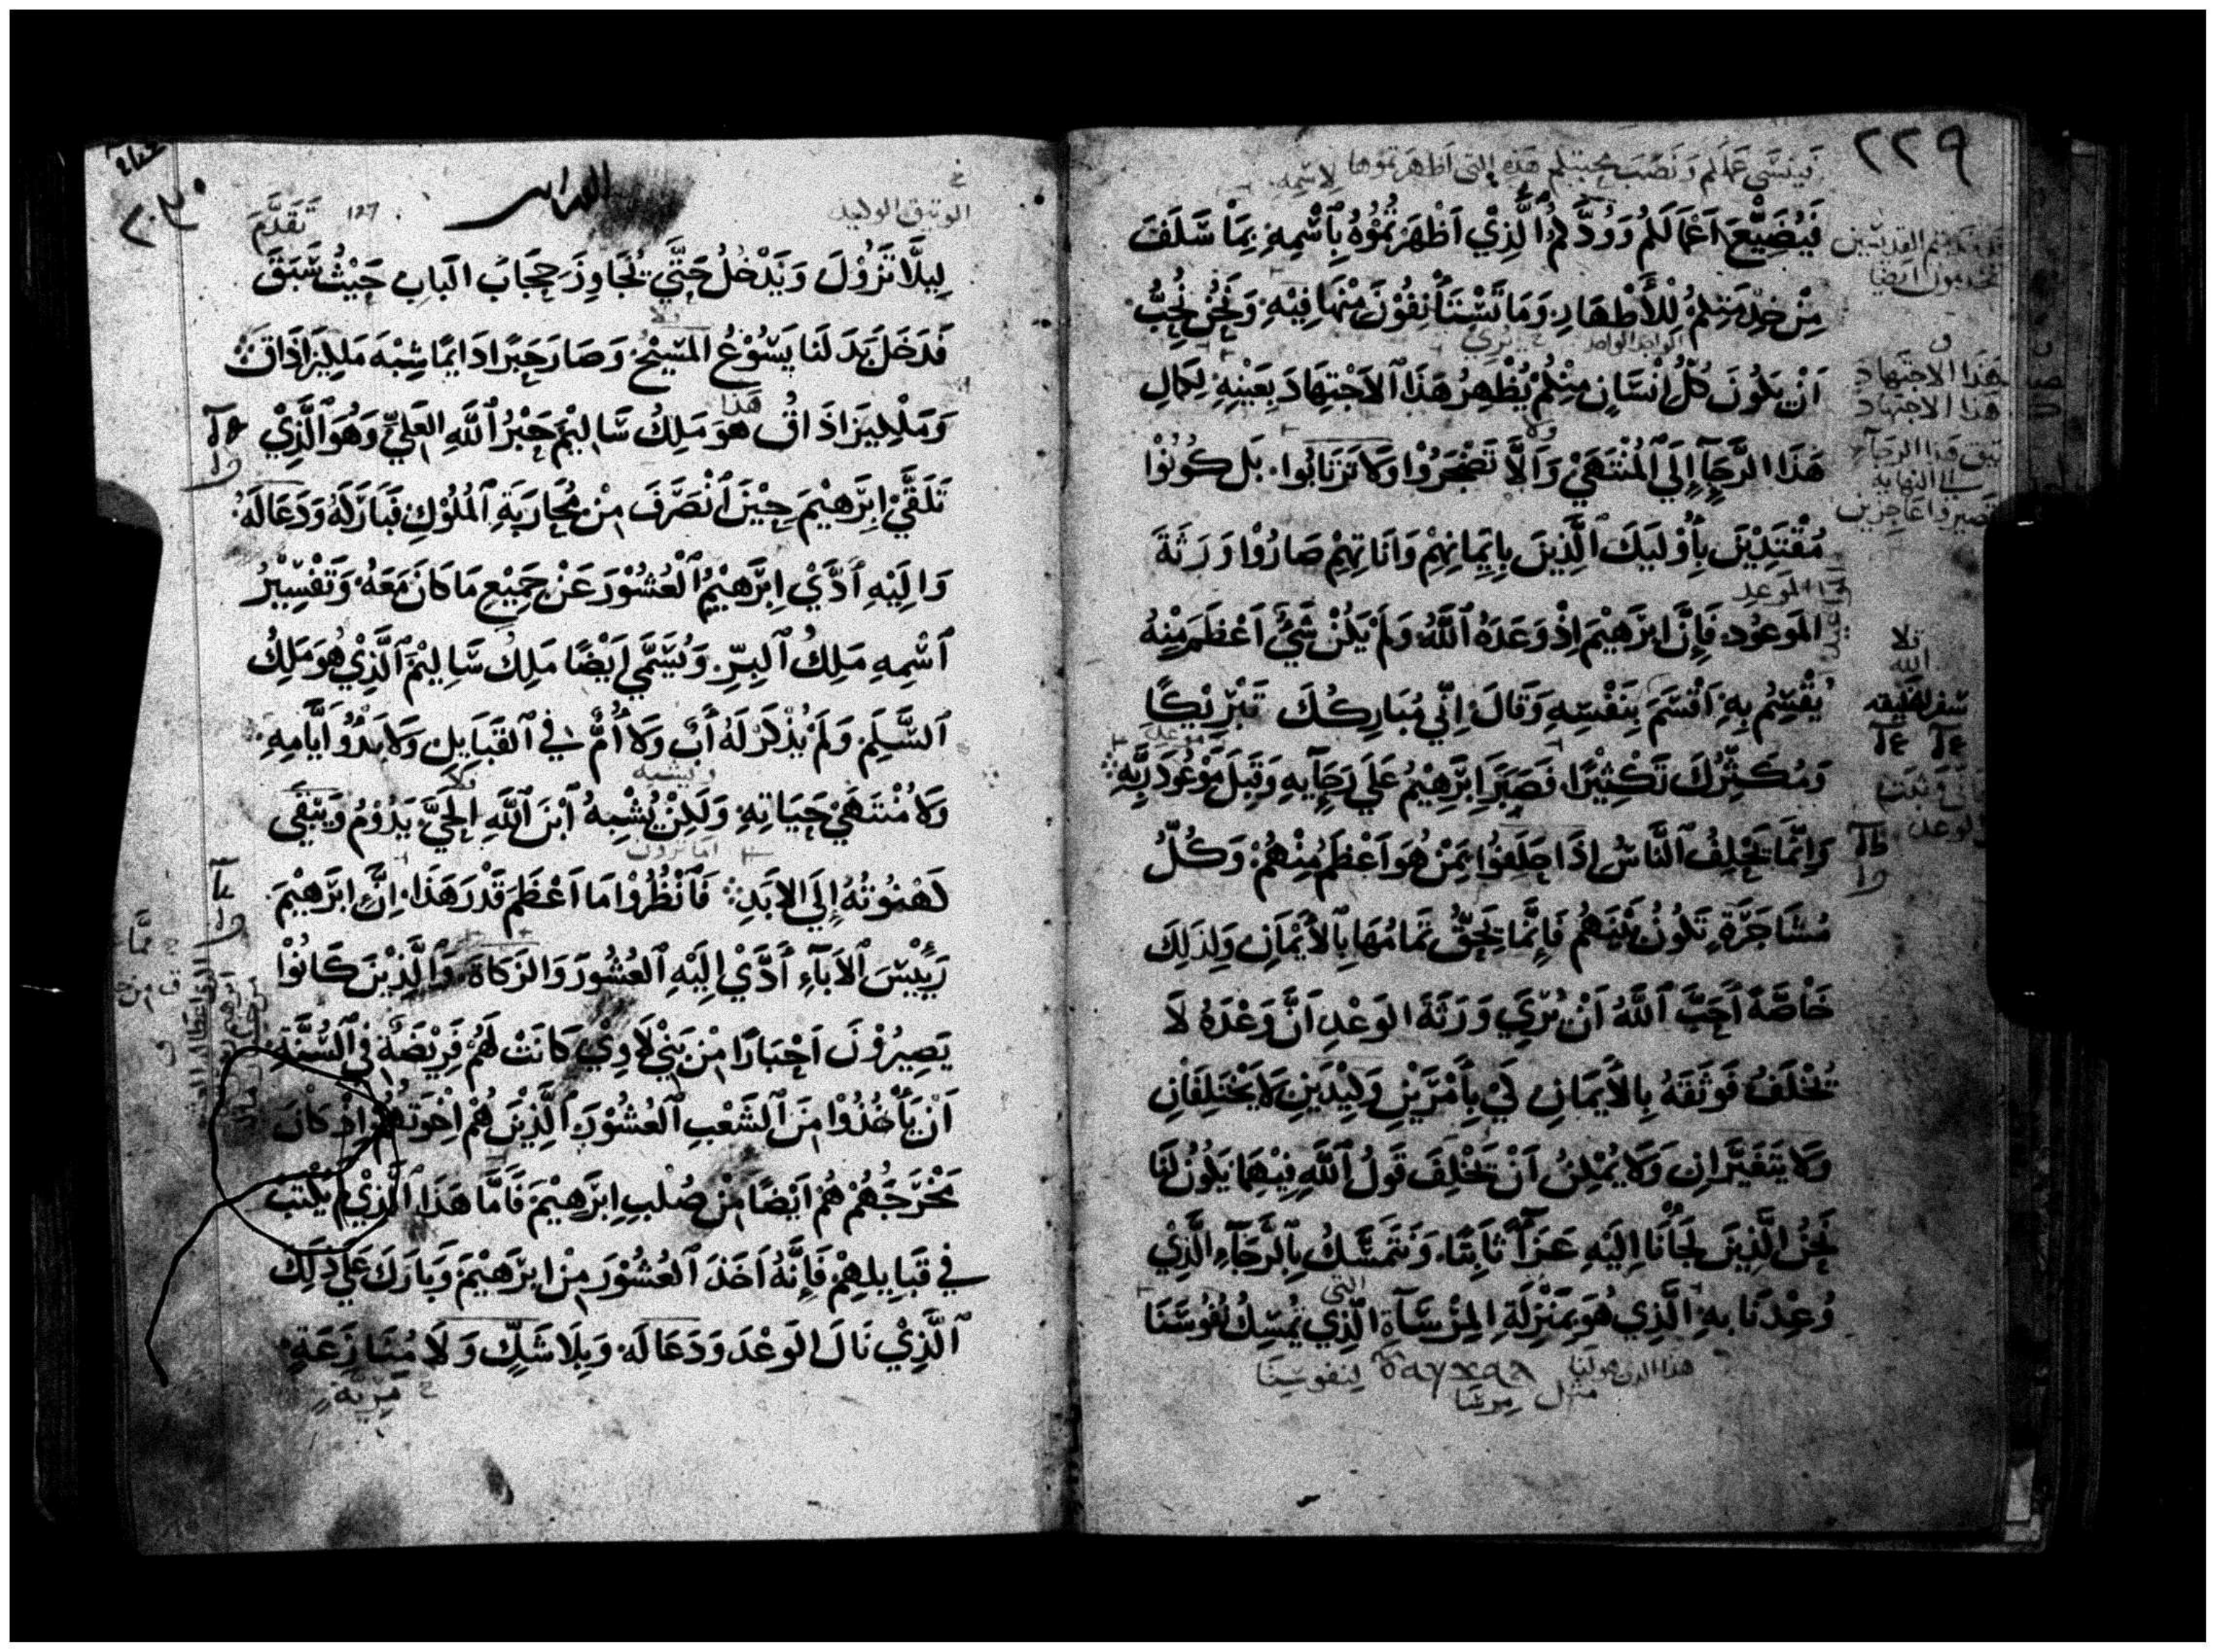 ٢٢٩
فَيُضَيِّعَ اَعْمَالَكُمْ وَوُدَّكُمُ الَّذِيْ اَظْهَرْتُمُوْهُ بِاسْمِهِ بِمَا سَلَفَ
مِنْ خِدْمَتِكُمُ لِلْأَطْهَارِ وَمَا تَسْتَأْنِفُوْنَ مِنْهَا فِيْهِ وَنَحْنُ نُحِبُّ
اَنْ يَكُوْنَ كُلُّ اِنْسَانٍ مِنْكُمْ يُظْهِرُ هَذَا الاجْتِهَادَ بِعَيْنِهِ لِكَمَالِ
هَذَا الرَّجَآءِ إِلَى الْمُنْتَهَيْ وَالَّا تَضْجَرُوْا وَلَا تَرْتَابُوا بَل كُوْنُوْا
مُقْتَدِيْنَ بِأُوْلَيِكَ الَّذِيْنَ بِايْمَانِهِمْ وَانَاتِهِمْ صَارُوْا وَرَثَةَ
المَوعُودِ فَإِنَّ ابْرَهِيْمَ اِذْ وَعَدَهُ اللَّهُ وَلَمْ يَكُنْ شَيْءٌ اَعْظَمَ مِنْهُ
يُقْسِمُ بِهِ اَقْسَمَ بِنَفْسِهِ وَقَالَ اِنِّي مُبَارِكُكَ تَبْرِيْكًا
وَمُكَثِّرُكَ تَكْثِيْرًا فَصَبَرَ ابْرَهِيْمُ عَلَي رَجَآيِهِ وَقَبِلَ مَوْعُودَ رَبِّهِ
وَاِنَّمَا يَحْلِفُ النَّاسُ اِذَا حَلَفُوا بِمَنْ هُوَ اَعْظَمُ مِنْهُمْ وَكُلُّ
مُشَاجَرَةٍ تَكُونُ بَيْنَهُمْ فَاِنَّمَا يَحِقُّ تَمَامُهَا بِالأَيْمَانِ وَلِذَلِكَ
خَاصَّةً اَحَبَّ اللَّهُ اَنْ يُرِيَ وَرَثَةَ الوَعْدِ اَنَّ وَعْدَهُ لَا
يُخْلَفُ فَوَثَقَهُ بِالأَيمَانِ لَيْ بِأَمْرَيْنِ وَكِيْدَيْنِ لَا يَخْتَلِفَانِ
وَلَا يَتَغَيَّرَانِ وَلَا يُمْكِنُ اَنْ يَخْلِفَ قَولُ اللَّهِ فِيْهِمَا يَكُوْنُ لَنَا
نَحْنُ الَّذِيْنَ لَجَأْنَا اِلَيْهِ عَزَآءً ثَابِتًا وَنَتَمَسَّكُ بِالرَّجَآءِ الَّذِيْ
وُعِدْنَا بِهِ الَّذِي هُوَ بِمَنْزِلَةِ المِرْسَآةِ الَّذِي يُمْسِكُ نُفُوْسَنَا
هذا الذي هو لنا
مثل مرسَا
لنفوسِنَا
١٢٧
تَقَدَّمَ
لِيلَّا تَزُوْلَ وَيَدْخُلُ حَتَّي تُجَاوِزَ حِجَابَ البَابِ حَيْثُ سَبَقَ
فَدَخَلَ بَدَ لَنَا يَسُوْعُ المَسِيْحُ وَصَارَ حَبْرًا دَايمًا شِبْهَ مَلكِيزَادَاقَ
وَمَلْكِيزَادَاقُ هُوَ مَلِكُ سَاليْمَ حَبْرُ اللَّهِ العَلِيِّ وَهُوَ الَّذِيْ
تَلَقَّيْ ابْرَهِيْمَ حِيْنَ انْصَرَفَ مِنْ مُحَارَبَةِ المُلُوْكِ فَبَارَكَهُ وَدَعَا لَهُ
وَالِيْهِ اَدَّيْ ابْرَهِيْمُ الْعُشُوْرَ عَنْ جَمِيْعِ مَا كَانَ مَعَهُ وَتَفْسِيْرُ
اسْمِهِ مَلِكُ البِرِّ وَيُسَمَّي اَيْضًا مَلِكَ سَاليْمَ الَّذِيْ هُوَ مَلِكُ
السَّلَمِ وَلَمْ يُذْكَرْ لَهُ أَبٌ وَلَا أُمٌّ فِي القَبَايِلِ وَلَا بَدْؤُ اَيَّامِهِ
وَلَا مُنْتَهَيْ حَيَاتِهِ وَلَكِنْ يُشْبِهُ ابْنَ اللَّهِ الحَيَّ يَدُوْمُ وَيَبْقَي
كَهْنُوْتُهُ إِلَي الابَدِ فَانْظُرُوْا مَا اَعْظَمَ قَدْرَ هَذَا اِنَّ ابْرَهِيْمَ
رَيِيْسَ الآبَآءِ اَدَّيْ اِلَيْهِ العُشُوْرَ وَالزَكَاةَ وَالَّذِيْنَ كَانُوْا
يَصِيْرُوْنَ اَحْبَارًا مِنْ بَنِيْ لَاوِيْ كَانَتْ لَهُمْ فَرِيْضَةٌ فِي السُّنَّةِ
اَنْ يَأْخُذُوْا مِنَ الشَعْبِ العُشُوْرَ الَّذِيْنَ هُمْ اِخْوَتُهُمْ اِذْ كَانَ
مَخْرَجُهُمْ هُمْ اَيْضًا مِنْ صُلْبِ ابْرَهِيْمَ فَامَّا هَذَا الَّذِيْ لَمْ يُكْتَبْ
فِي قَبَايِلِهِمْ فَاِنَّهُ اَخَذَ العُشُوْرَ مِنْ ابْرَهِيْمَ وَبَارَكَ عَلَي ذَلِكَ
الَّذِيْ نَالَ الوَعْدَ وَدَعَا لَهُ وَبِلَا شَكٍّ وَلَا مُنَازَعَةٍ
مِرْيَةٍ